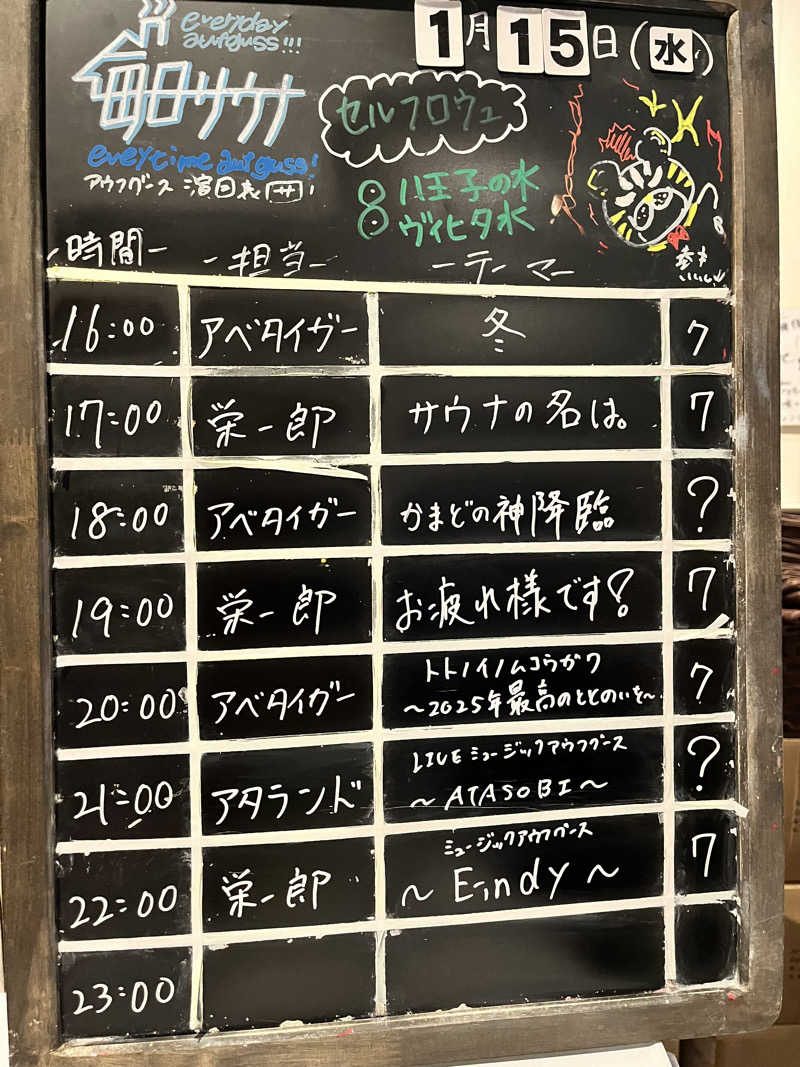 everyday
aufguss!!!
毎日サウナ
everytime aufguss!
アウフグース 演目表
1月15日(水)
セルフロウリュ
8 八王子の水
8 ヴィヒタ水
時間ー ー担当ー ーテーマー
16:00 アベタイガー 冬 7
17:00 栄一郎 サウナの名は。 7
18:00 アベタイガー かまどの神降臨 ?
19:00 栄一郎 お疲れ様です! 7
20:00 アベタイガー トトノイノムコウガワ 7
〜2025年最高のととのいを〜
21:00 アタランド LIVE ミュージックアウフグース ?
〜ATASOBI〜
22:00 栄一郎 ミュージックアウフグース 7
23:00